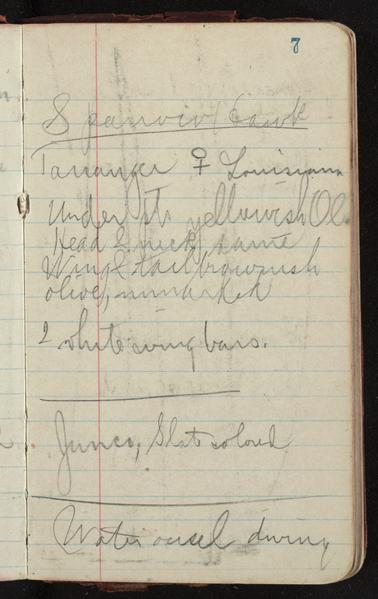 7
Sparrow Hawk
Tananger ♀ Louisiana
Under yellowish Ol
Head & neck same
Wing & tail brownish
olive, unmarked
2 white wing bars.
Junco, Slate colored
Water ousel diving